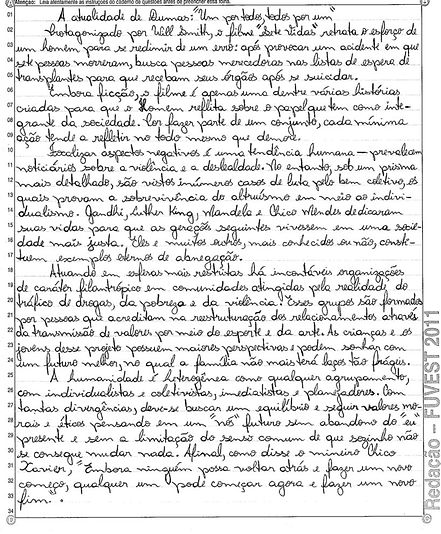 Atenção: Leia atentamente as instruções do caderno de questões antes de preencher esta folha.
01 A atualidade de Dumas: "Um por todos, todos por um"
02 Protagonizado por Will Smith, o filme "Sete Vidas" retrata o esforço de
03 um homem para se redimir de um erro: após provocar um acidente em que
04 sete pessoas morreram, busca pessoas merecedoras nas listas de espera de
05 transplantes para que recebam seus órgãos após se suicidar.
06 Embora ficção, o filme é apenas uma dentre várias histórias
07 criadas para que o Homem reflita sobre o papel que tem como inte-
08 grante da sociedade. Por fazer parte de um conjunto, cada mínima
09 ação tende a refletir no todo mesmo que demore.
10 Focalizar aspectos negativos é uma tendência humana — prevalecem
11 noticiários sobre a violência e a deslealdade. No entanto, sob um prisma
12 mais detalhado, são vistos inúmeros casos de luta pelo bem coletivo, os
13 quais provam a sobrevivência do altruísmo em meio ao indivi-
14 dualismo. Gandhi, Luther King, Mandela e Chico Mendes dedicaram
15 suas vidas para que as gerações seguintes vivessem em uma socie-
16 dade mais justa. Eles e muitos outros, mais conhecidos ou não, consti-
17 tuem exemplos eternos de abnegação.
18 Atuando em esferas mais restritas há incontáveis organizações
19 de caráter filantrópico em comunidades atingidas pela realidade do
20 tráfico de drogas, da pobreza e da violência. Esses grupos são formados
21 por pessoas que acreditam na reestruturação dos relacionamentos através
22 da transmissão de valores por meio do esporte e da arte. As crianças e os
23 jovens desse projeto possuem maiores perspectivas e podem sonhar com
24 um futuro melhor, no qual a família não mais terá laços tão frágeis.
25 A humanidade é heterogênea como qualquer agrupamento,
26 com individualistas e coletivistas, imediatistas e planejadores. Com
27 tantas divergências, deve-se buscar um equilíbrio e seguir valores mo-
28 rais e éticos pensando em um "nós" futuro sem abandono do "eu"
29 presente e sem a limitação do senso comum de que sozinho não
30 se consegue mudar nada. Afinal, como disse o mineiro Chico
31 Xavier, "Embora ninguém possa voltar atrás e fazer um novo
32 começo, qualquer um pode começar agora e fazer um novo
33 fim".
34
Redação – FUVEST 2011